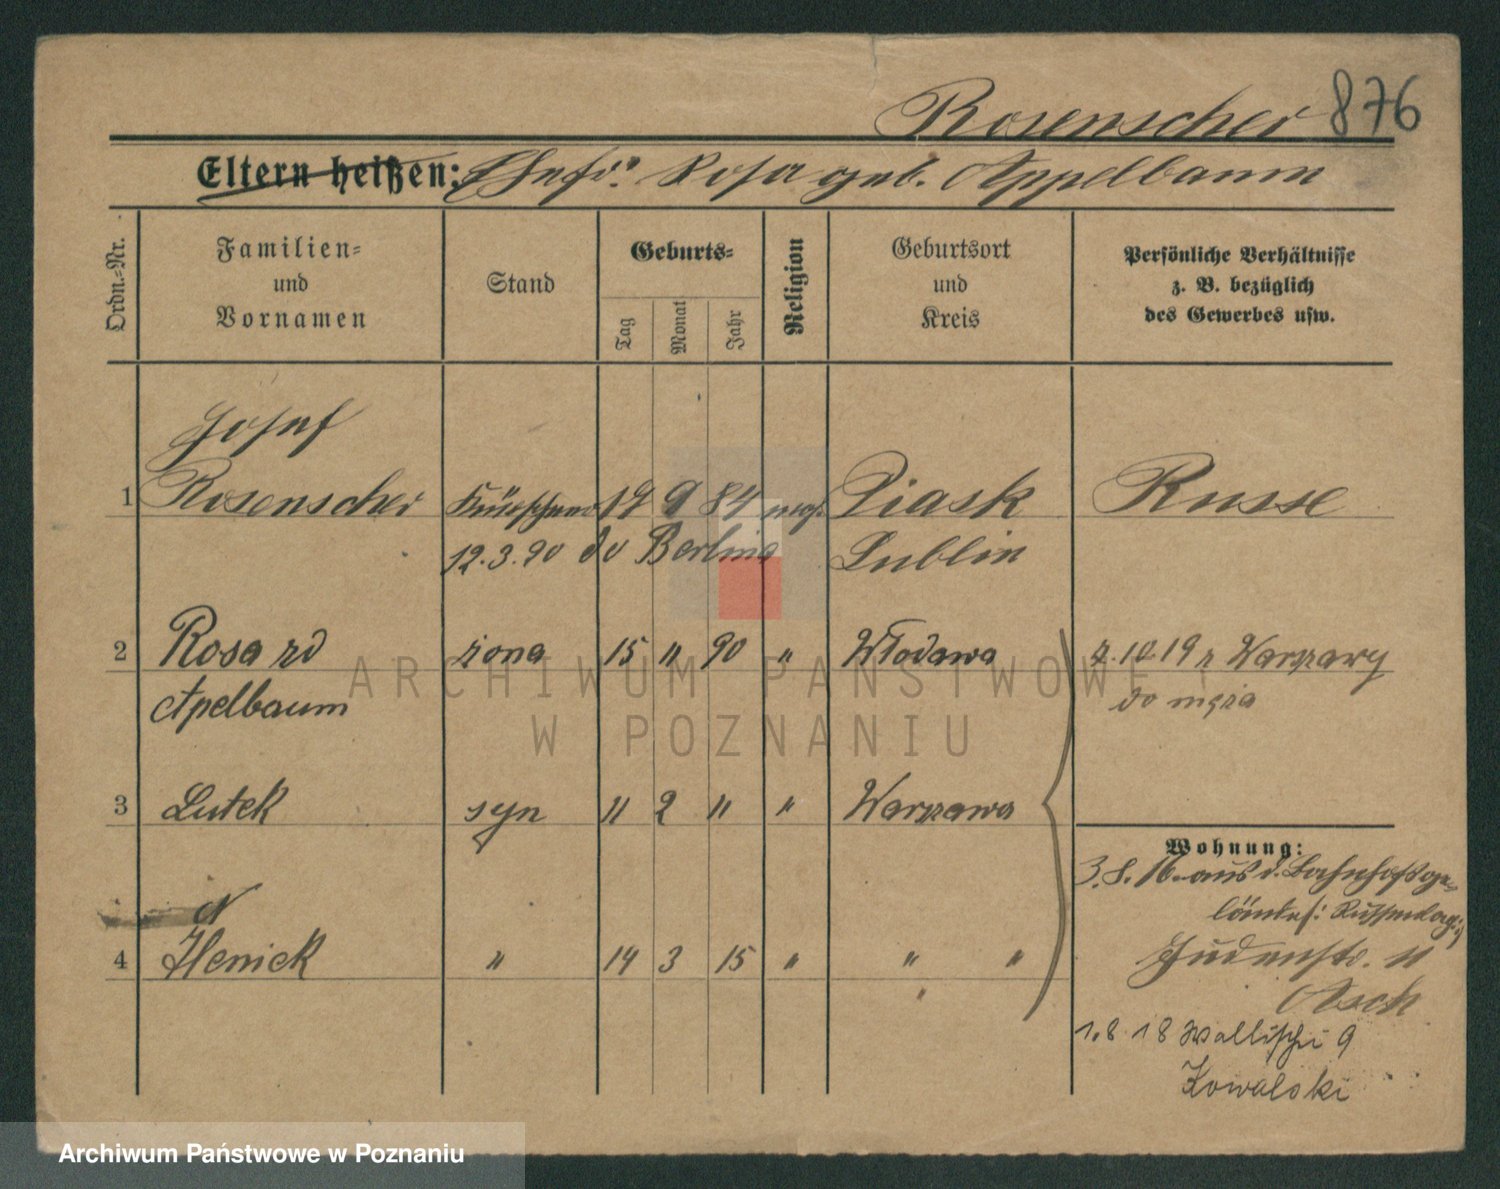 Rosenscher 876
Eltern heißen: Ehefr. Rosa geb. Appelbaum
Ordn.-Nr.
Familien-
und
Vornamen
Stand
Geburts-
Tag
Monat
Jahr
Religion
Geburtsort
und
Kreis
Persönliche Verhältnisse
z. B. bezüglich
des Gewerbes usw.
Josef
1 Rosenscher Kürschner 19 9 84 mos. Piask Russe
12.3.20 do Berlina Lublin
2 Rosa zd żona 15 " 90 " Włodawa 2.10.19 z Warszawy
Apelbaum do męża
3 Lutek syn 11 2 11 " Warszawa
Wohnung:
3.8.16. aus d. Bahnhofsge-
lände
4 Henick " 14 3 15 " " "
Judenstr. 11
Asch
1.8 18 Wallischei 9
Kowalski
ARCHIWUM PAŃSTWOWE
W POZNANIU
Archiwum Państwowe w Poznaniu